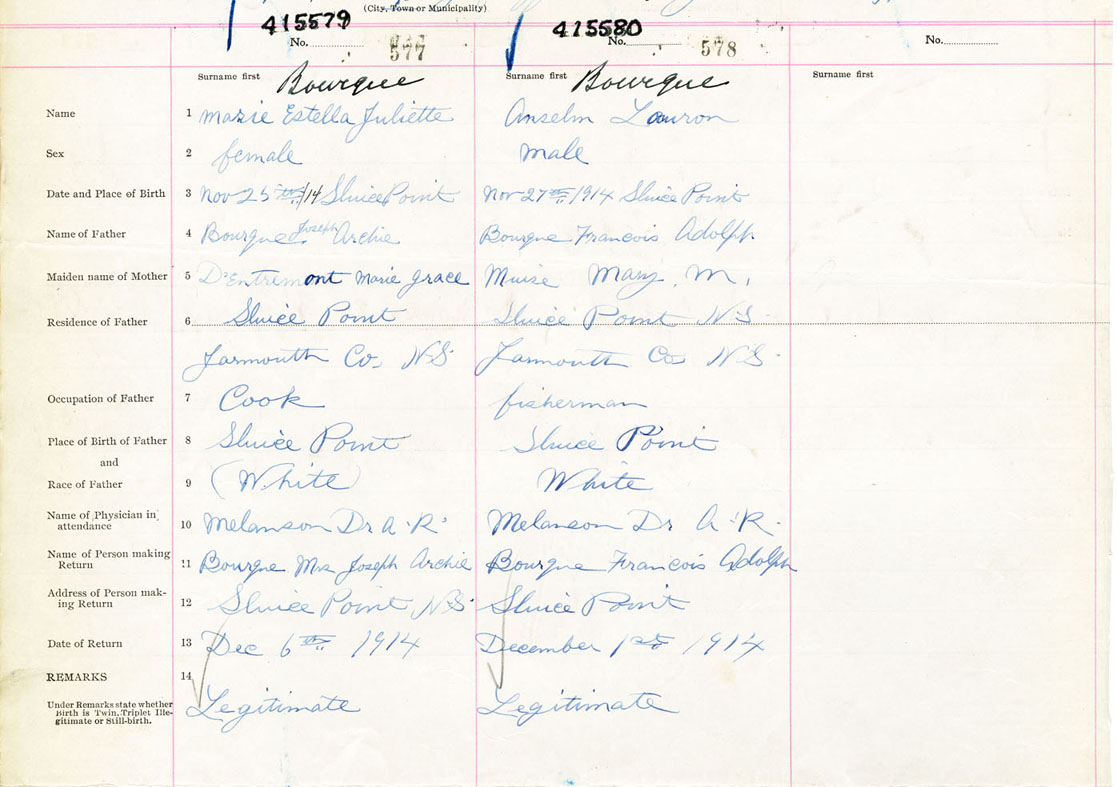 (City, Town or Municipality)
415579 415580
No. 577 No. 578 No.
Surname first Surname first Surname first
Bourque Bourque
Name 1 Marie Estella Juliette Anselm
Sex 2 female male
Date and Place of Birth 3 Nov 25th/14 Sluice Point Nov 27th 1914 Sluice Point
Name of Father 4 Bourque Joseph Archie Bourque Francois Adolph
Maiden name of Mother 5 D'Entremont Marie Grace Muise Mary. M.
Residence of Father 6 Sluice Point Sluice Point N-S-
Yarmouth Co. N-S- Yarmouth Co N-S-
Occupation of Father 7 Cook fisherman
Place of Birth of Father 8 Sluice Point Sluice Point
and
Race of Father 9 (White) White
Name of Physician in
attendance 10 Melanson Dr A-R- Melanson Dr A-R-
Name of Person making
Return 11 Bourque Mrs Joseph Archie Bourque Francois Adolph
Address of Person mak-
ing Return 12 Sluice Point N-S- Sluice Point
Date of Return 13 Dec 6th 1914 December 1st 1914
REMARKS 14
Under Remarks state whether
Birth is Twin, Triplet Ille-
gitimate or Still-birth. Legitimate Legitimate